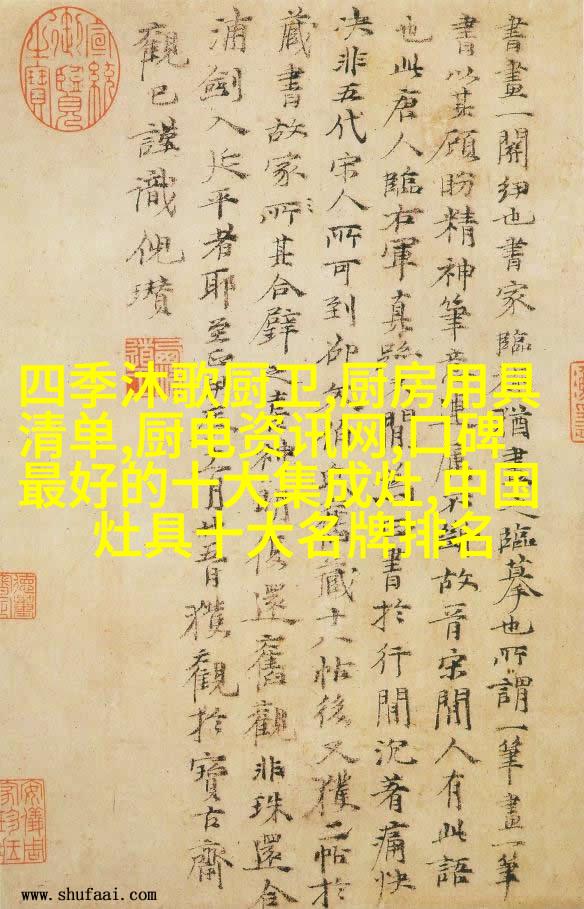 宣統御覽之寶
書畫一關紐也書家臨猶畫臨摹也所謂一筆畫一筆
書以其顧盼精神筆屬故晉宋間人有此語
也此唐人臨右軍真間書於行間沉著痛快
决非五代宋人所可到卻藏十八帖後又獲二帖於
藏書故家所其合璧之神明還舊觀非珠還合
浦劍入延平者耶至月獲觀於寶古齋
觀已謹識倪瓚
四季沐歌厨卫,厨房用具
清单,厨电资讯网,口碑
最好的十大集成灶,中国
灶具十大名牌排名
安儀周家珍藏
www.shufaai.com